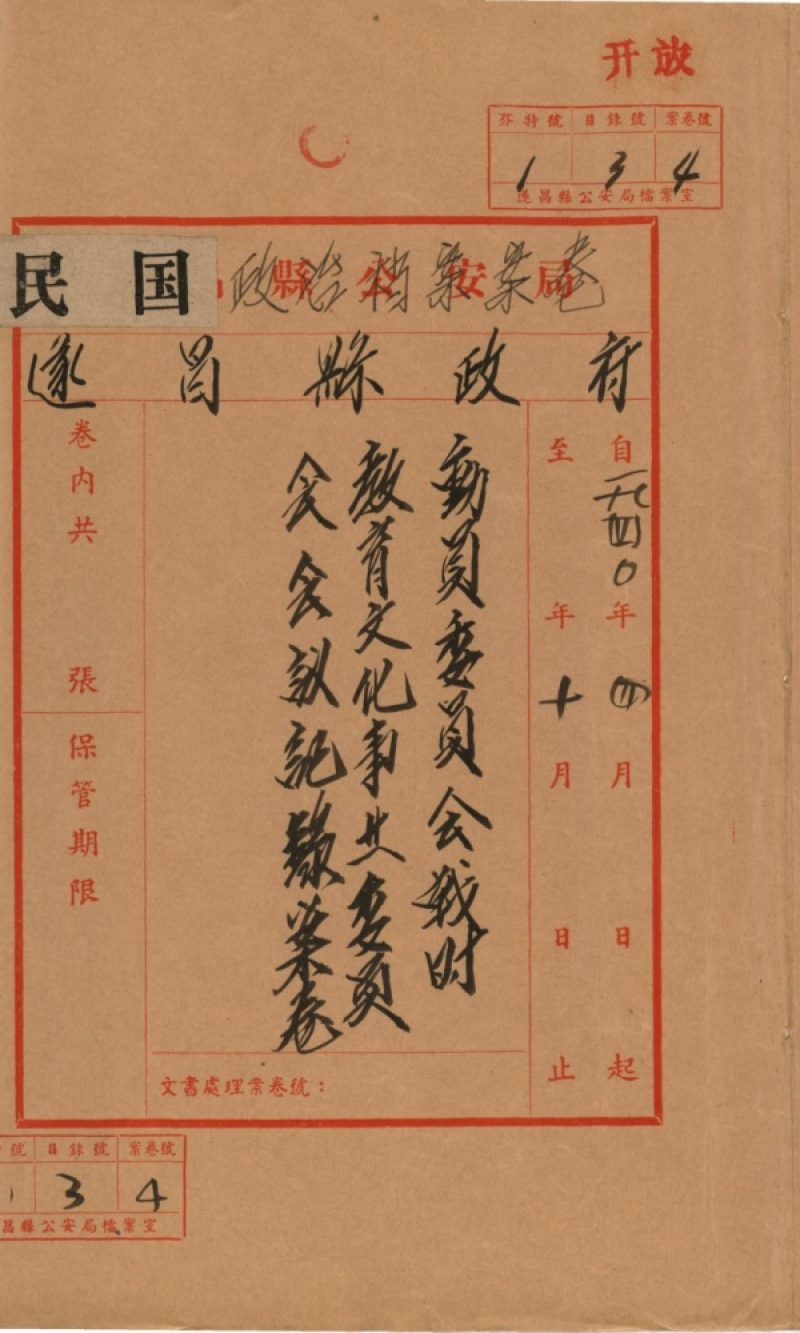 开放
芬特號 目錄號 案卷號
1 3 4
遂昌縣公安局檔案室
民国
縣公安局
政治档案案卷
遂昌縣政府
自一九四〇年四月 日起
至 年十月 日止
動員委員会战时
教育文化事业委員
会会议記錄案卷
卷内共 張
保管期限
文書處理案卷號：
號 目錄號 案卷號
3 4
昌縣公安局檔案室